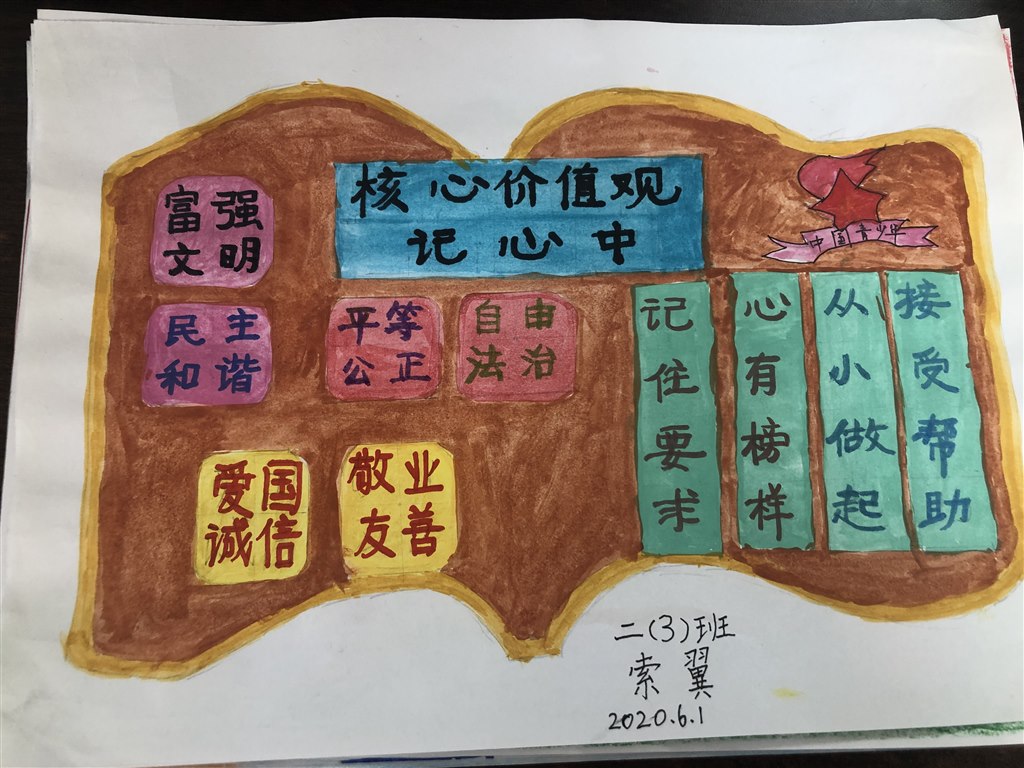 核心价值观
记心中
富强
文明
民主
和谐
平等
公正
自由
法治
爱国
诚信
敬业
友善
中国青少年
记住要求
心有榜样
从小做起
接受帮助
二(3)班
索翼
2020.6.1